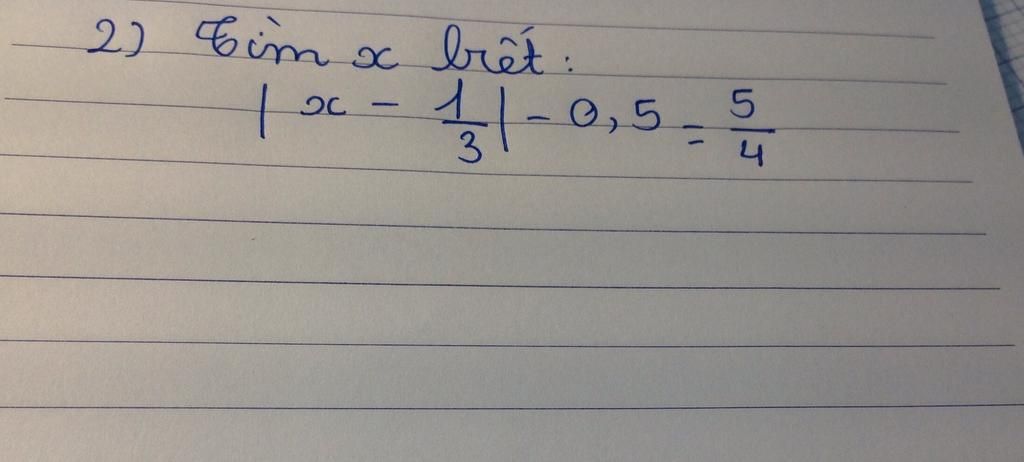 2) Tìm x biết:
| x - 1/3 | - 0,5 = 5/4